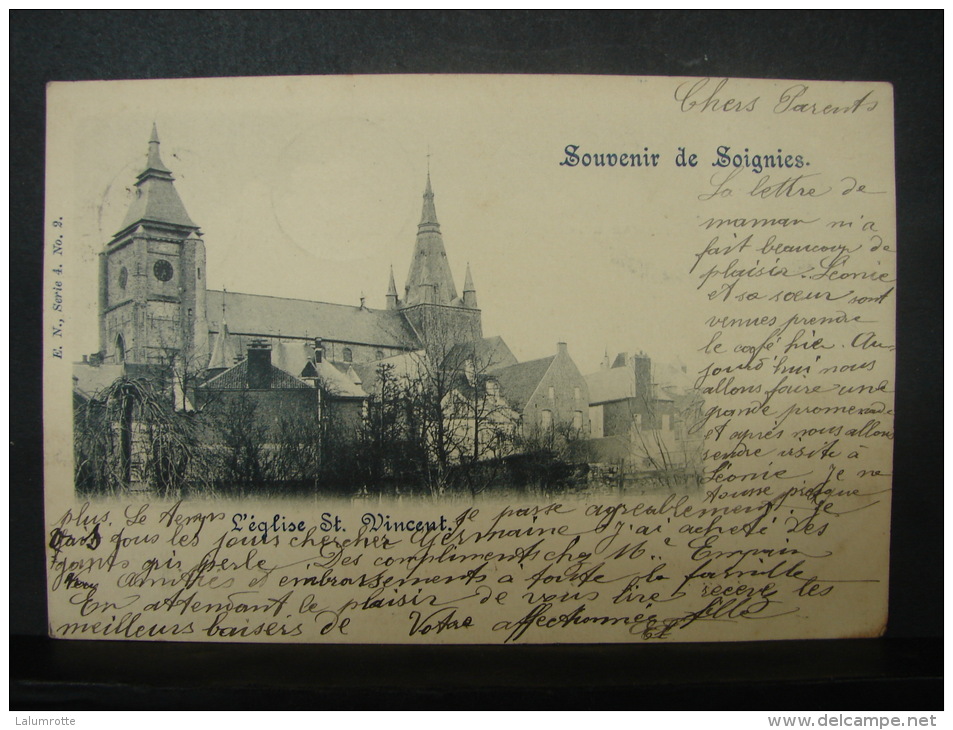 Chers Parents
Souvenir de Soignies.
E. N., Serie 4. No. 2.
La lettre de
maman m'a
fait beaucoup de
plaisir. Léonie
et sa soeur sont
venues prendre
le café hier. Au-
jourd'hui nous
allons faire une
grande promenade
et après nous allons
rendre visite à
Léonie Je ne
tousse presque
plus. Le temps
L'église St. Vincent.
se passe agréablement. Je
vais tous les jours chercher Germaine J'ai acheté des
gants gris perle. Des compliments chez Mr Empain
Amitiés et embrassements à toute la famille
En attendant le plaisir de vous lire recevez les
meilleurs baisers de Votre affectionnée fille
Lalumrotte
http://www.delcampe.net